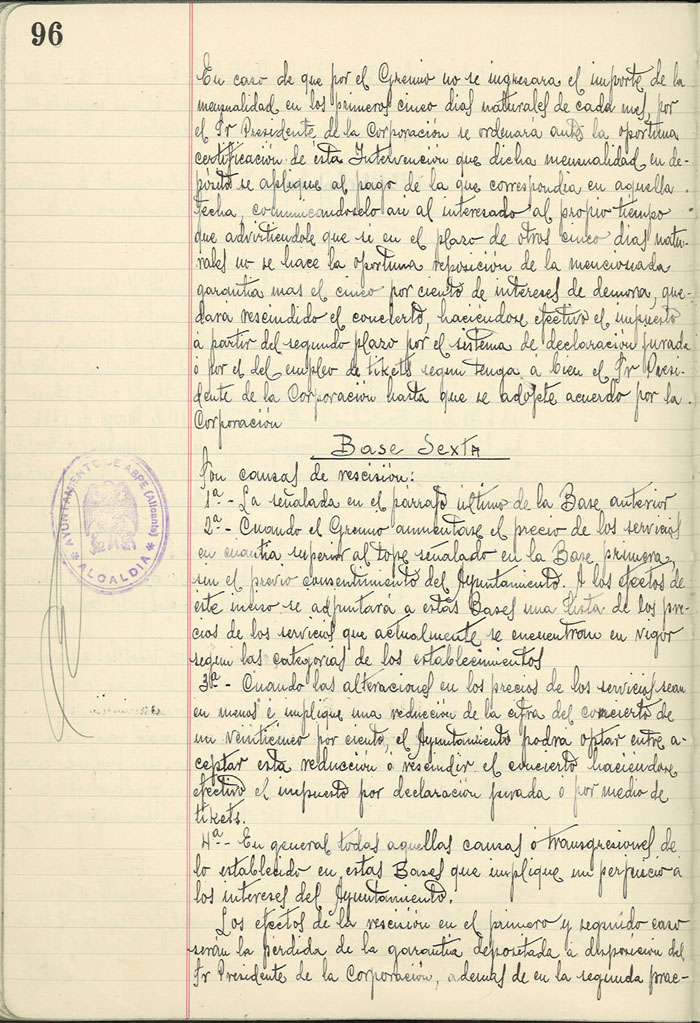 96
En caso de que por el Gremio no se ingresara el importe de la
mensualidad en los primeros cinco dias naturales de cada mes, por
el Sr Presidente de la Corporación se ordenara ante la oportuna
certificación de esta Intervención que dicha mensualidad en de-
pósito se aplique al pago de la que correspondia en aquella
fecha, comunicandoselo asi al interesado al propio tiempo
que advirtiendole que si en el plazo de otros cinco dias natu-
rales no se hace la oportuna reposición de la mencionada
garantia mas el cinco por ciento de intereses de demora, que-
dara rescindido el concierto, haciendose efectivo el impuesto
a partir del segundo plazo por el sistema de declaración jurada
o por el del empleo de tikets segun tenga a bien el Sr Presi-
dente de la Corporación hasta que se adopte acuerdo por la
Corporación
Base Sexta
Son causas de rescisión:
1ª - La señalada en el párrafo último de la Base anterior
2ª - Cuando el Gremio aumentase el precio de los servicios
en cuantia superior al tope señalado en la Base primera,
sin el previo consentimiento del Ayuntamiento. A los efectos de
este inciso se adjuntará a estas Bases una lista de los pre-
cios de los servicios que actualmente se encuentran en vigor
segun las categorias de los establecimientos
3ª - Cuando las alteraciones en los precios de los servicios sean
en menos e implique una reducción de la cifra del concierto de
un veinticinco por ciento, el Ayuntamiento podrá optar entre a-
ceptar esta reducción o rescindir el concierto haciendose
efectivo el impuesto por declaración jurada o por medio de
tikets.
4ª - En general todas aquellas causas o transgresiones de
lo establecido en estas Bases que implique un perjuicio a
los intereses del Ayuntamiento.
Los efectos de la rescisión en el primero y segundo caso
serán la perdida de la garantia depositada a disposicion del
Sr Presidente de la Corporación, ademas de en la segunda prac-
AYUNTAMIENTO DE ASPE (Alicante)
* ALCALDIA *